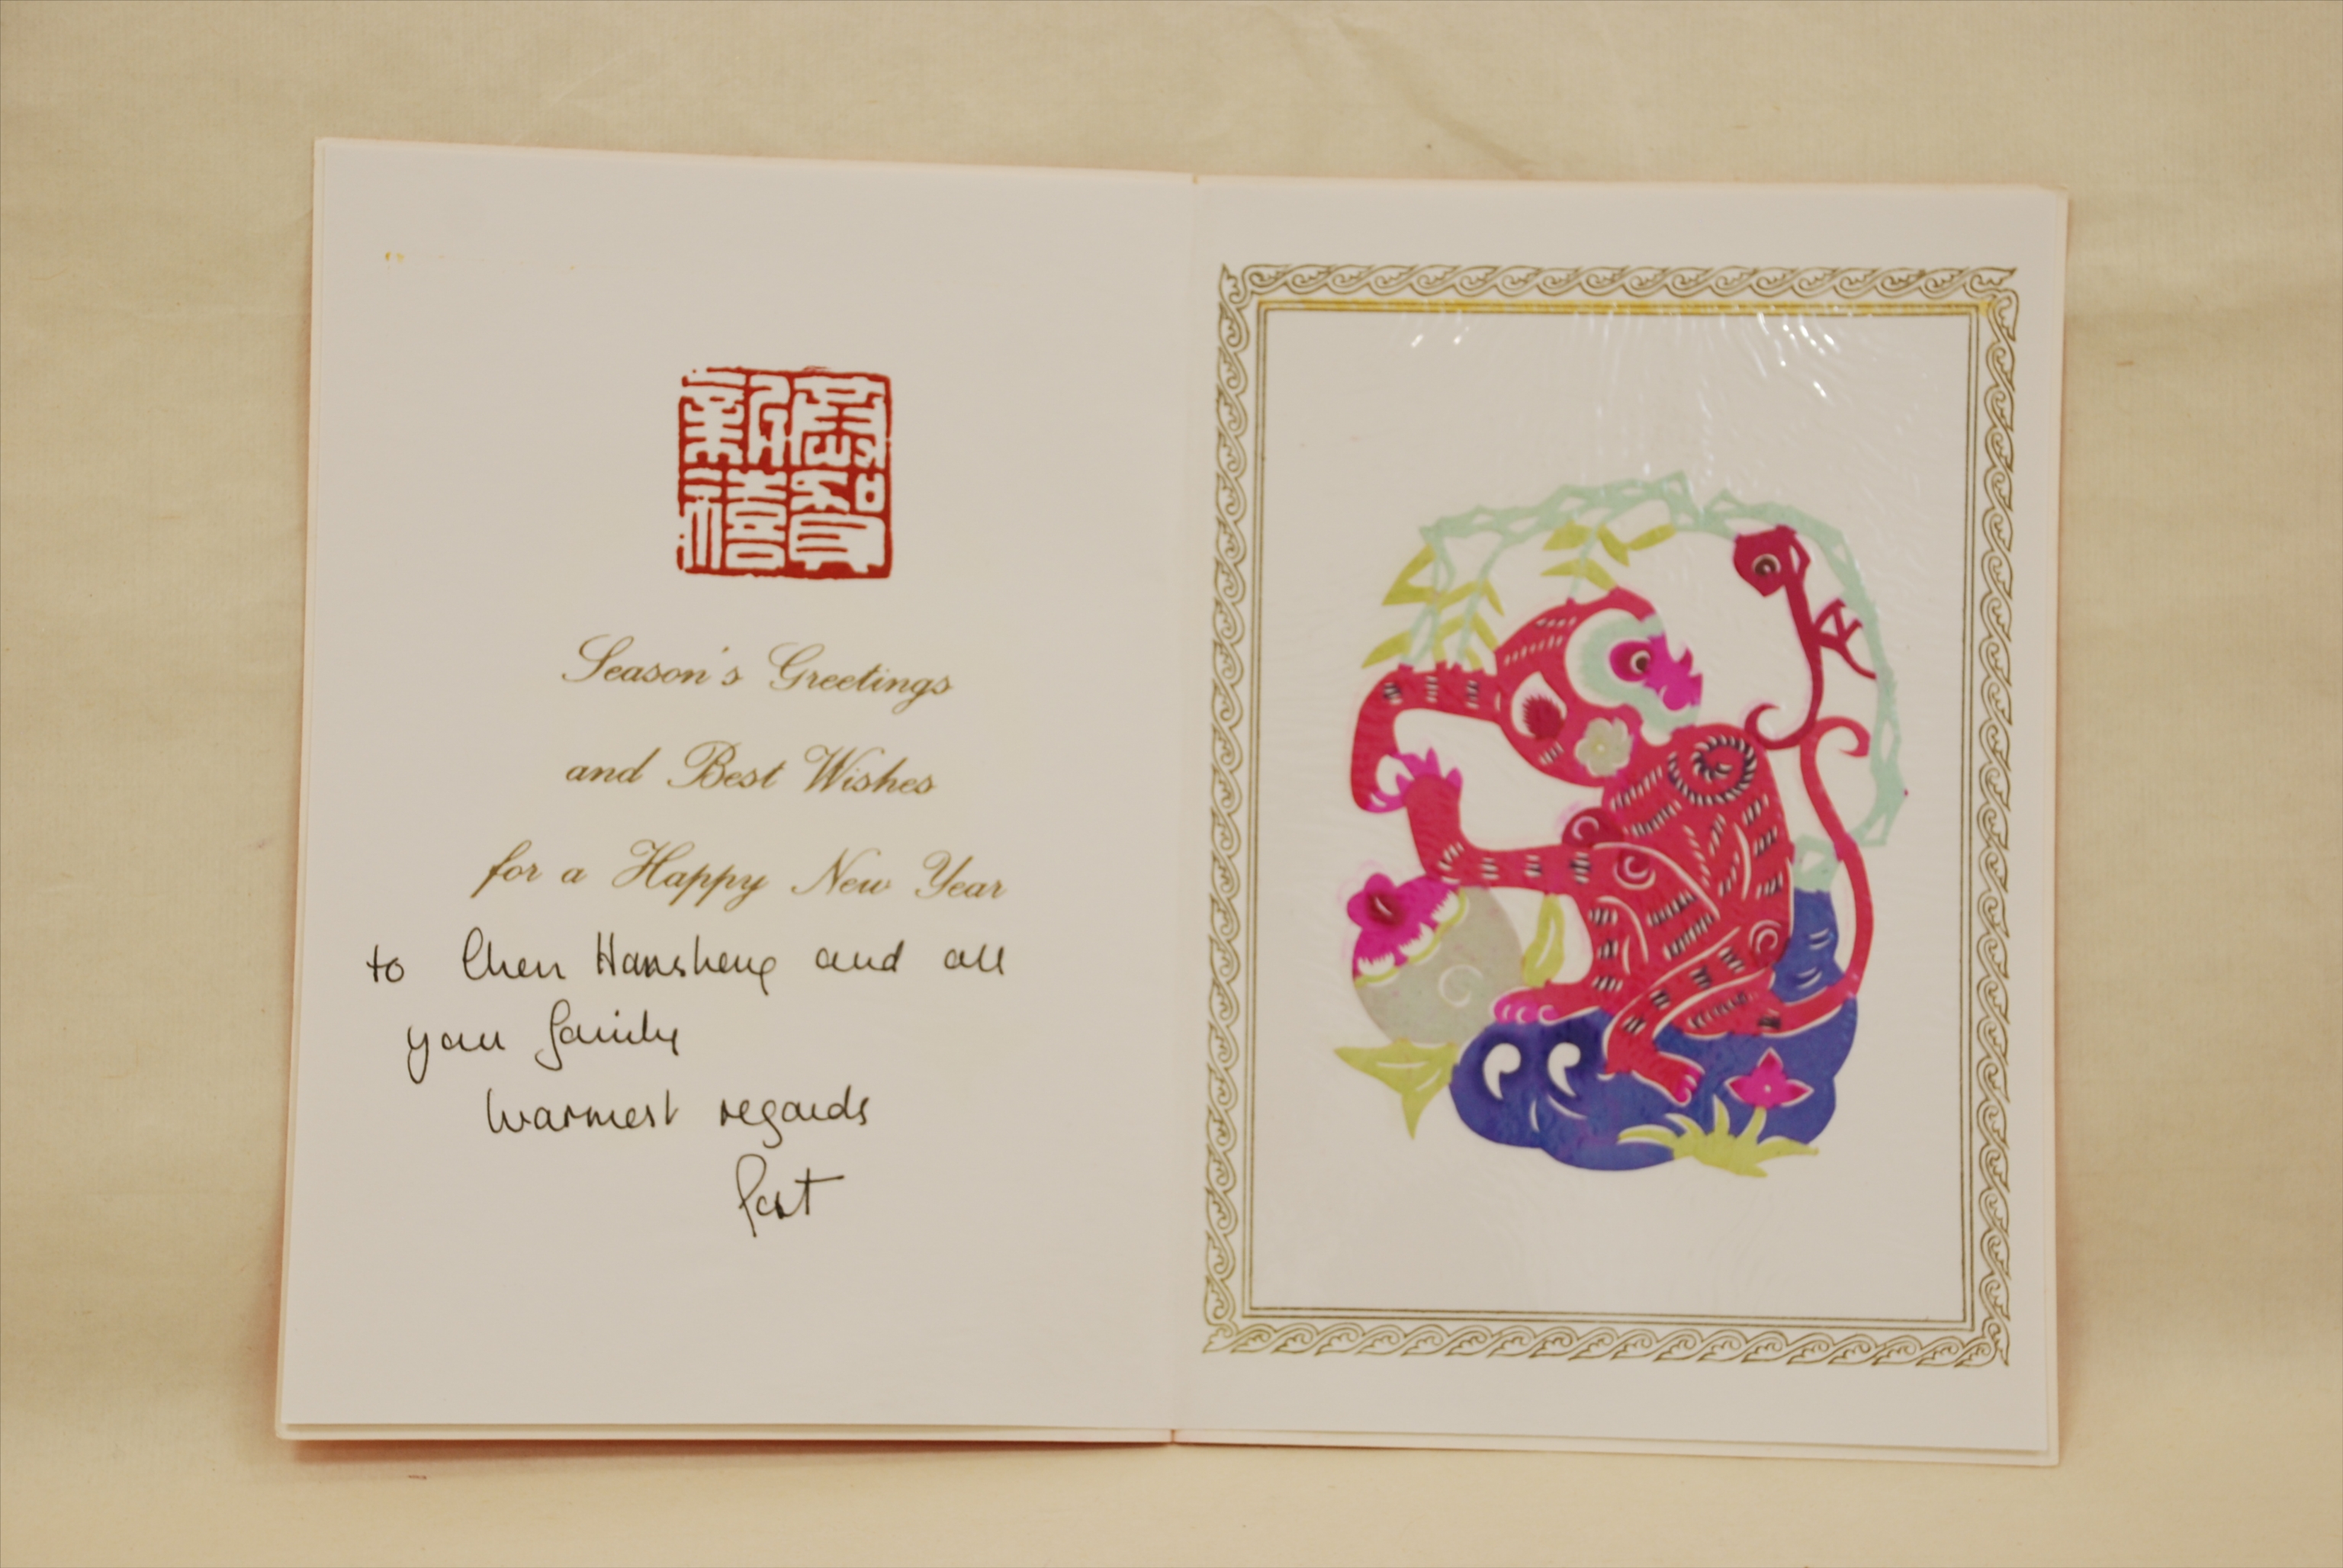 恭賀
新禧
Season's Greetings
and Best Wishes
for a Happy New Year
to Chen Hansheng and all
your family
Warmest regards
Pat